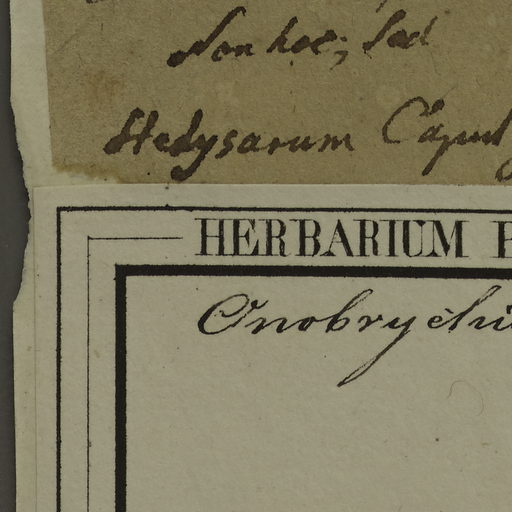 Non hoc; sed
Hedysarum Caput
HERBARIUM
Onobrychi